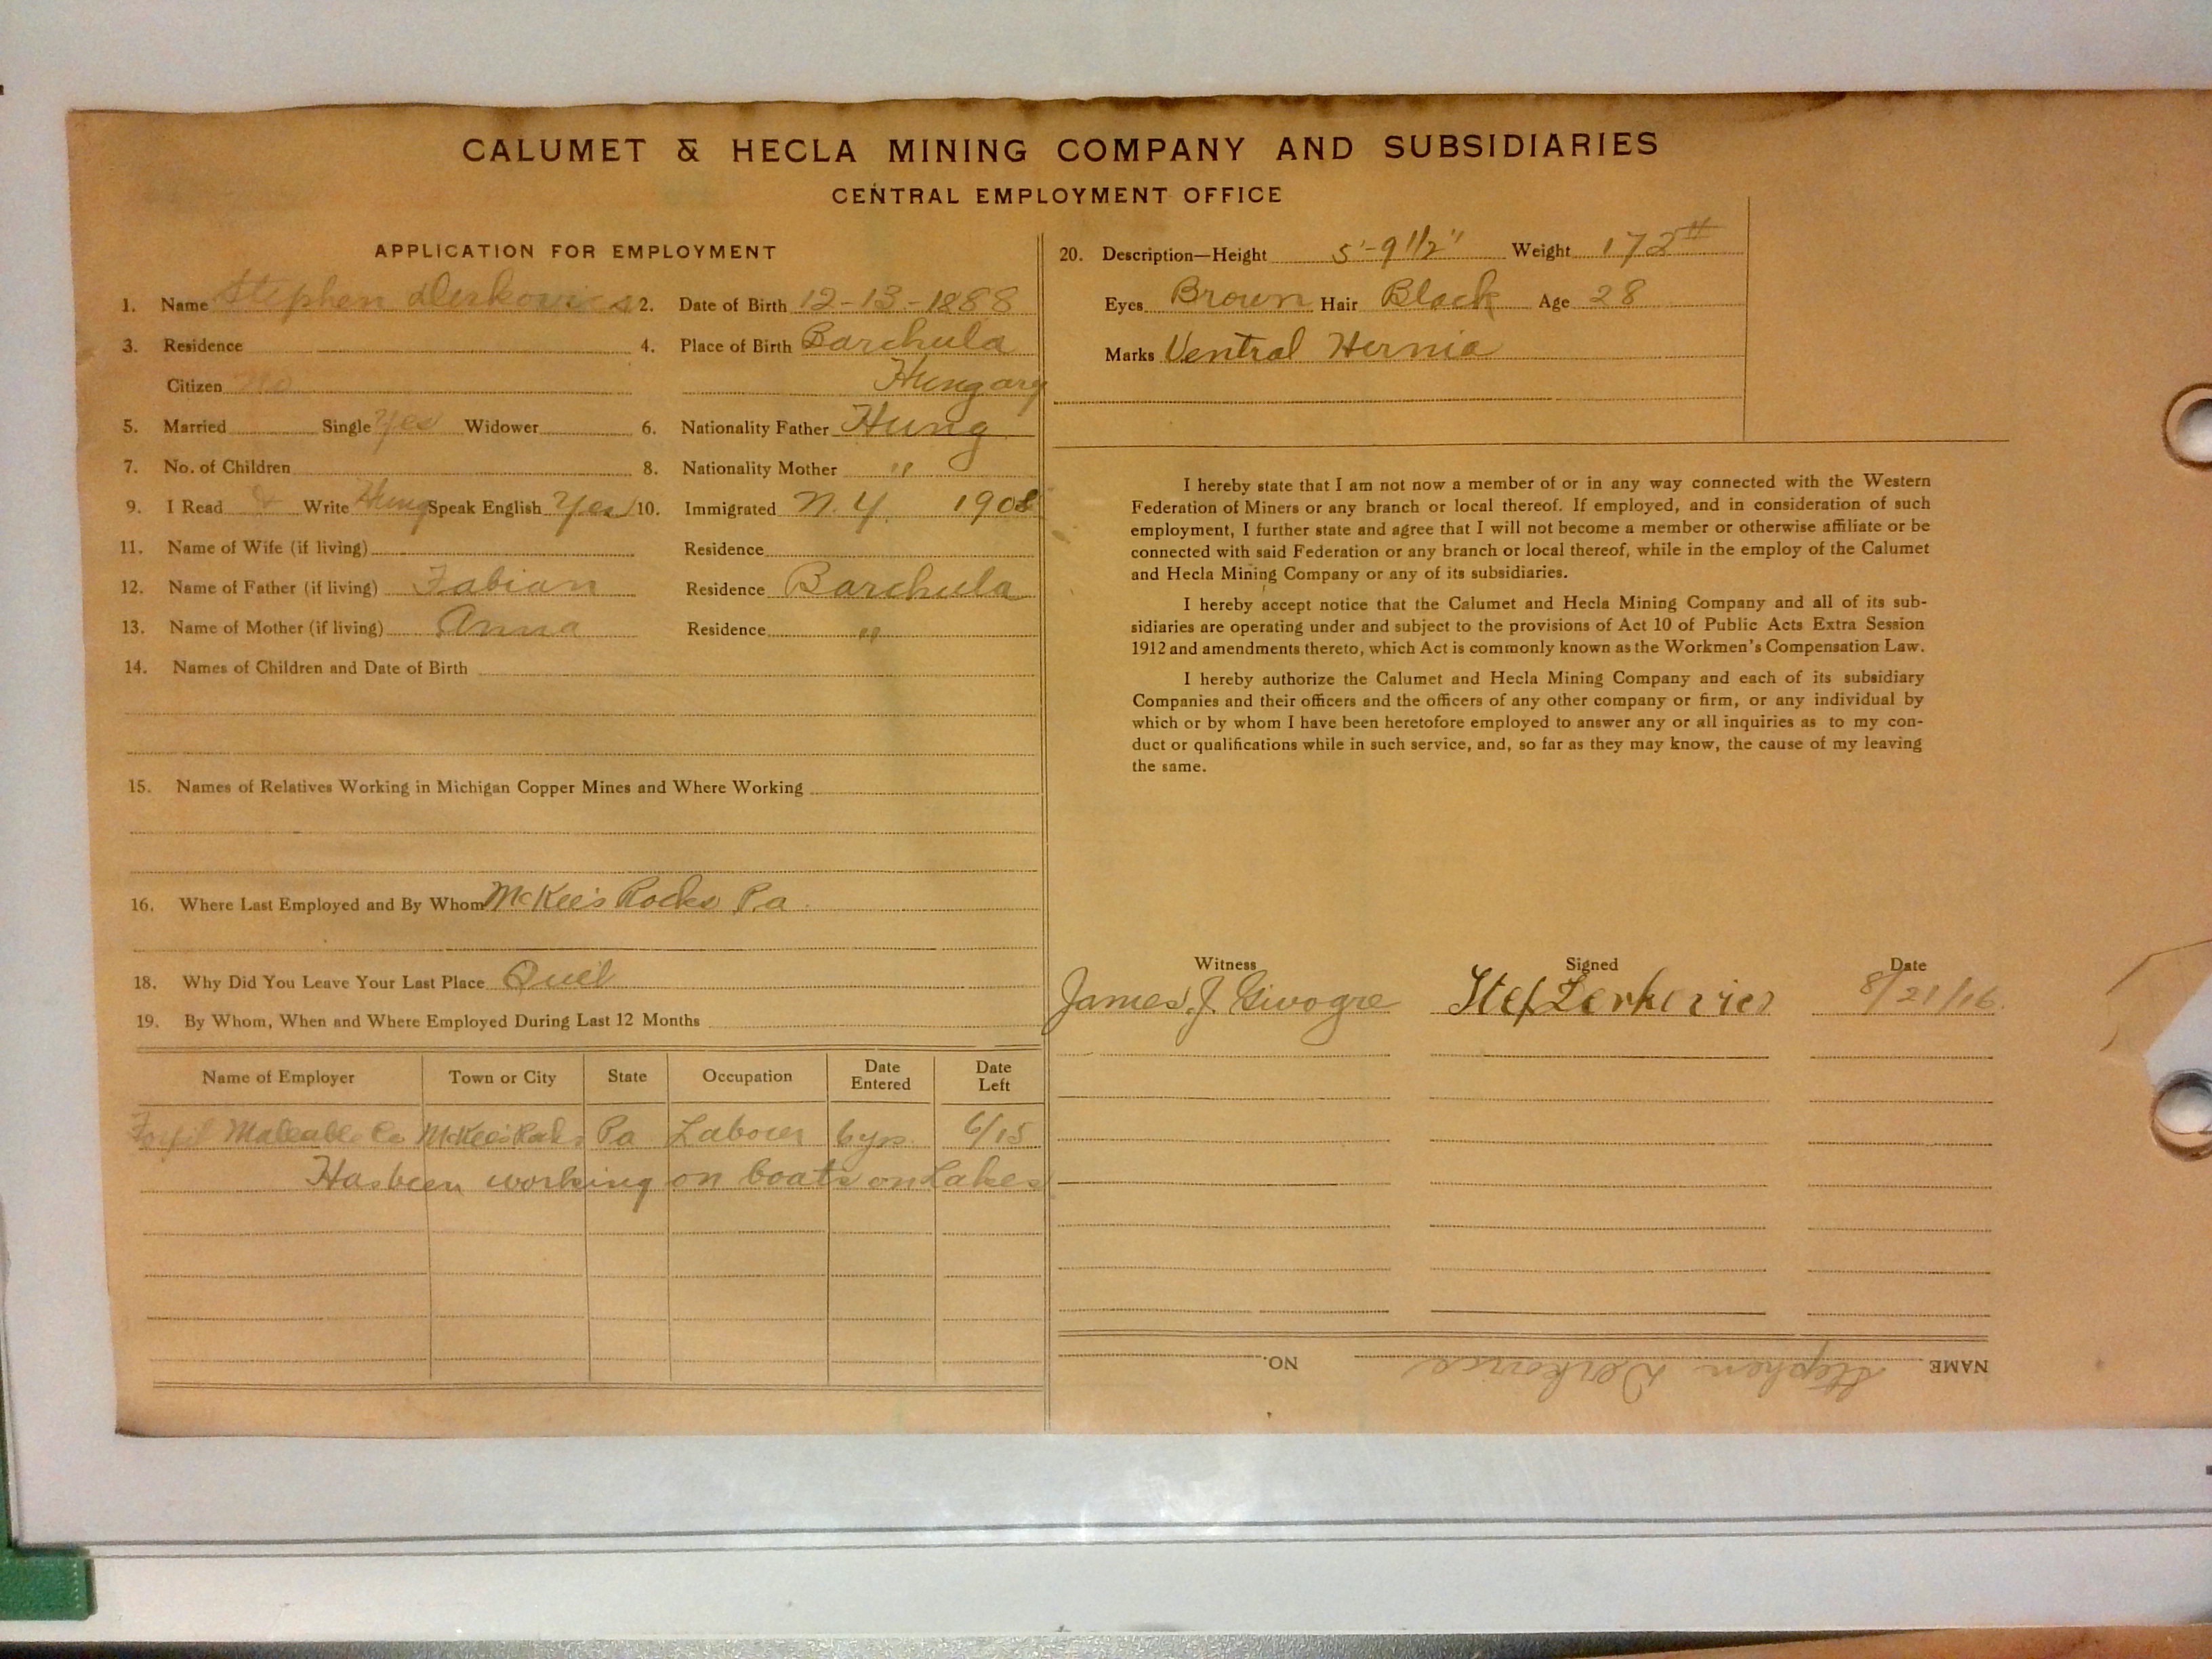 CALUMET & HECLA MINING COMPANY AND SUBSIDIARIES
CENTRAL EMPLOYMENT OFFICE
APPLICATION FOR EMPLOYMENT
1. Name Stephen Derkovics 2. Date of Birth 12-13-1888
3. Residence 4. Place of Birth Barchula
Citizen No Hungary
5. Married Single Yes Widower 6. Nationality Father Hung
7. No. of Children 8. Nationality Mother "
9. I Read & Write Hung Speak English Yes 10. Immigrated N.Y. 1908
11. Name of Wife (if living) Residence
12. Name of Father (if living) Fabian Residence Barchula
13. Name of Mother (if living) Anna Residence "
14. Names of Children and Date of Birth
15. Names of Relatives Working in Michigan Copper Mines and Where Working
16. Where Last Employed and By Whom McKee's Rocks Pa.
18. Why Did You Leave Your Last Place Quit
19. By Whom, When and Where Employed During Last 12 Months
Name of Employer Town or City State Occupation Date Entered Date Left
Maleable Co McKee's Rocks Pa Laborer 6 yrs. 6/15
Has been working on boats on Lakes
20. Description—Height 5'-9 1/2" Weight 172#
Eyes Brown Hair Black Age 28
Marks Ventral Hernia
I hereby state that I am not now a member of or in any way connected with the Western
Federation of Miners or any branch or local thereof. If employed, and in consideration of such
employment, I further state and agree that I will not become a member or otherwise affiliate or be
connected with said Federation or any branch or local thereof, while in the employ of the Calumet
and Hecla Mining Company or any of its subsidiaries.
I hereby accept notice that the Calumet and Hecla Mining Company and all of its sub-
sidiaries are operating under and subject to the provisions of Act 10 of Public Acts Extra Session
1912 and amendments thereto, which Act is commonly known as the Workmen's Compensation Law.
I hereby authorize the Calumet and Hecla Mining Company and each of its subsidiary
Companies and their officers and the officers of any other company or firm, or any individual by
which or by whom I have been heretofore employed to answer any or all inquiries as to my con-
duct or qualifications while in such service, and, so far as they may know, the cause of my leaving
the same.
Witness Signed Date
James J. Stef Derkovics 8/21/16
NAME Stephen Derkovics NO.